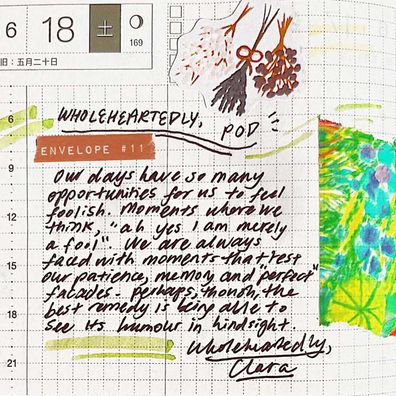 6 18 土
169
旧:五月二十日
6
WHOLEHEARTEDLY, POD
ENVELOPE #11
9
Our days have so many
opportunities for us to feel
foolish. Moments where we
think, "ah yes I am merely
12
a fool". We are always
faced with moments that test
our patience, memory and "perfect"
15
facades - perhaps, though, the
best remedy is being able to
see its humour in hindsight.
18
Wholeheartedly,
21
Clara